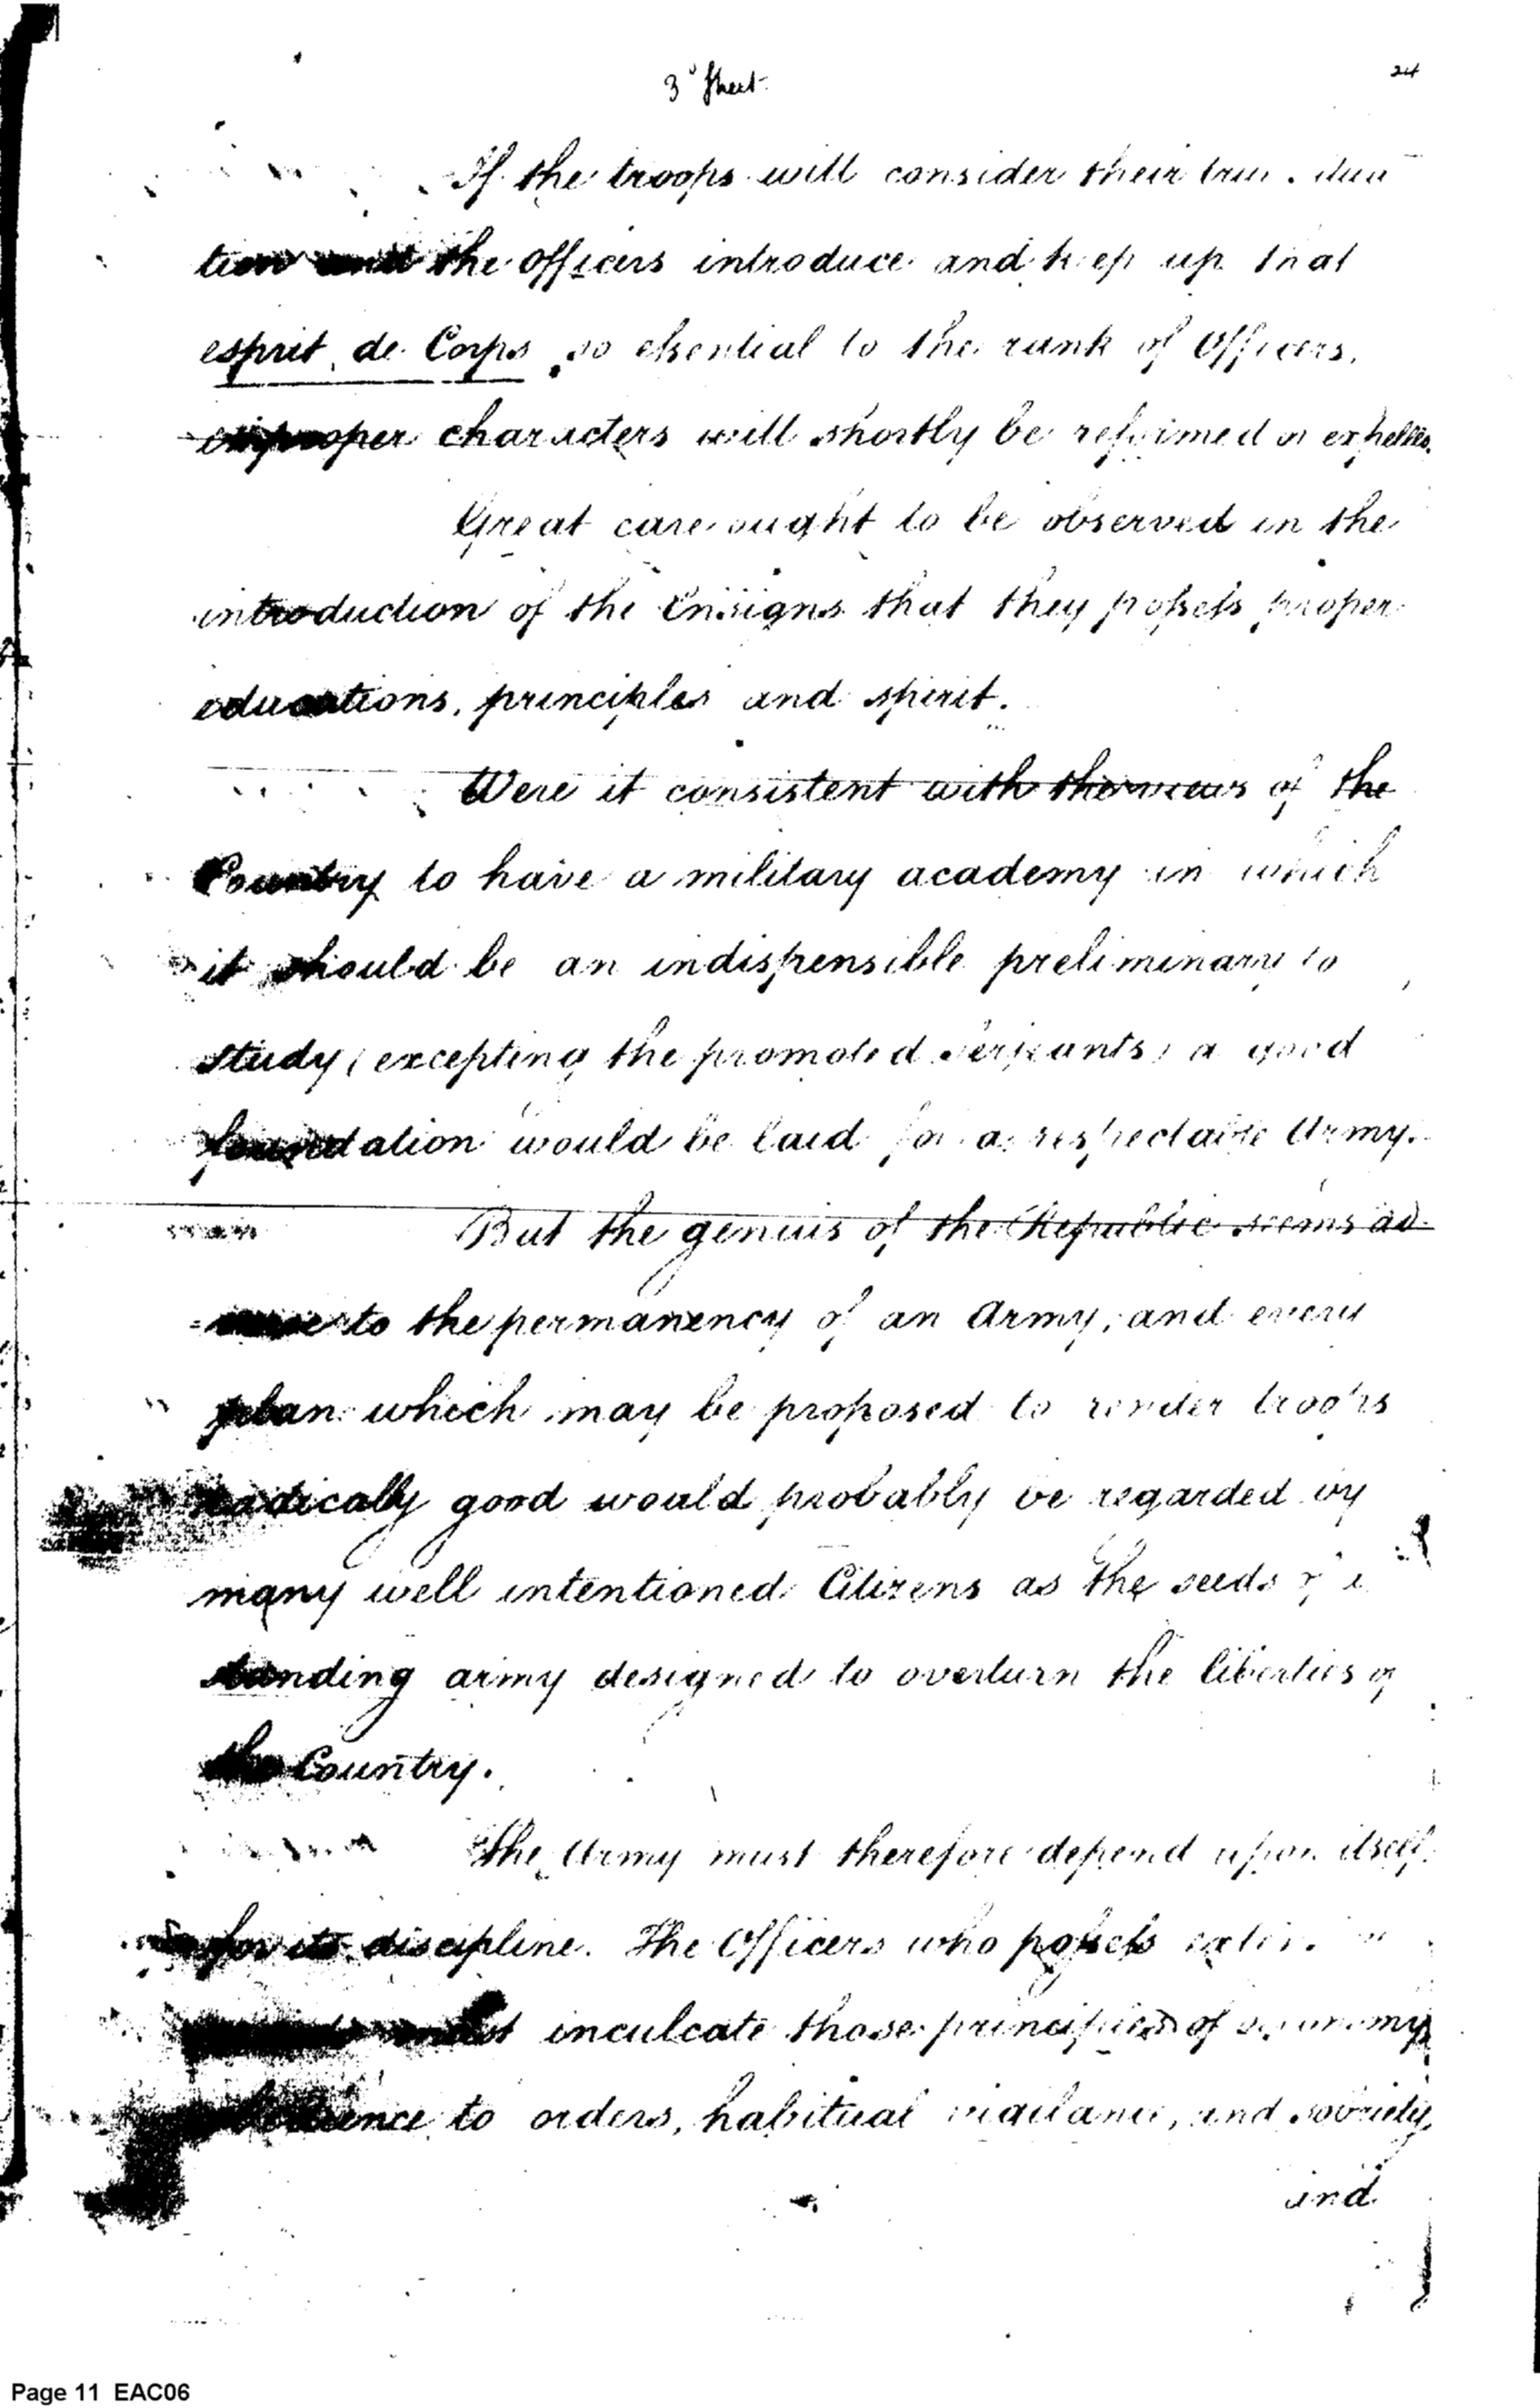 3d Sheet.
24
If the troops will consider their true
tion and the officers introduce and keep up that
esprit de Corps so essential to the rank of Officers,
improper characters will shortly be reformed or expelled.
Great care ought to be observed in the
introduction of the Ensigns that they possess proper
educations, principles and spirit.
Were it consistent with the views of the
Country to have a military academy in which
it should be an indispensible preliminary to
study (excepting the promoted serjeants) a good
foundation would be laid for a respectable Army.
But the genius of the Republic seems ad
=verse to the permanency of an Army, and every
plan which may be proposed to render troops
radically good would probably be regarded by
many well intentioned Citizens as the seeds of a
standing army designed to overturn the liberties of
the Country.
The Army must therefore depend upon itself
for its discipline. The Officers who possess
must inculcate those principles of economy
obedience to orders, habitual vigilance, and sobriety,
and
Page 11 EAC06